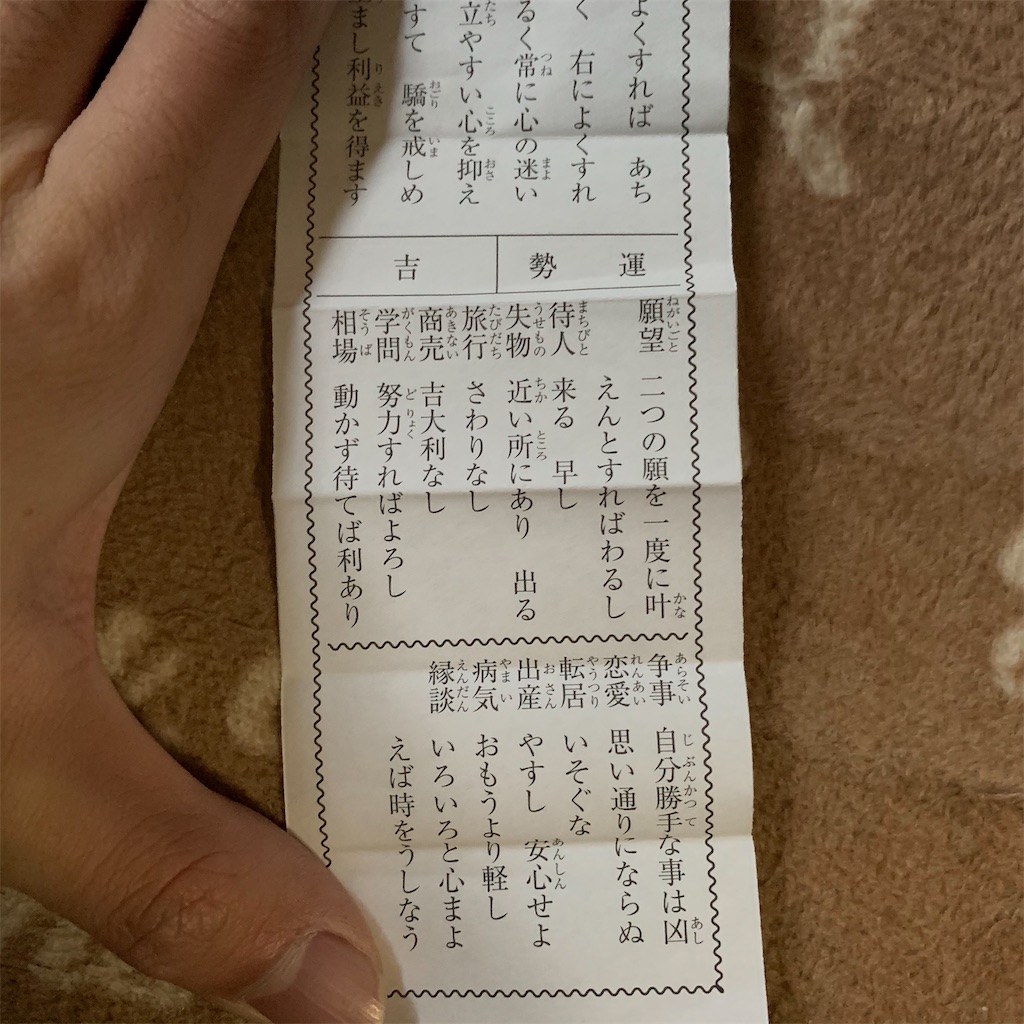 よくすれば あち
く 右によくすれ
るく常に心の迷い
立やすい心を抑え
すて 驕を戒しめ
まし利益を得ます
運勢 吉
願望 二つの願を一度に叶
えんとすればわるし
待人 来る 早し
失物 近い所にあり 出る
旅行 さわりなし
商売 吉大利なし
学問 努力すればよろし
相場 動かず待てば利あり
争事 自分勝手な事は凶
恋愛 思い通りにならぬ
転居 いそぐな
出産 やすし 安心せよ
病気 おもうより軽し
縁談 いろいろと心まよ
えば時をうしなう